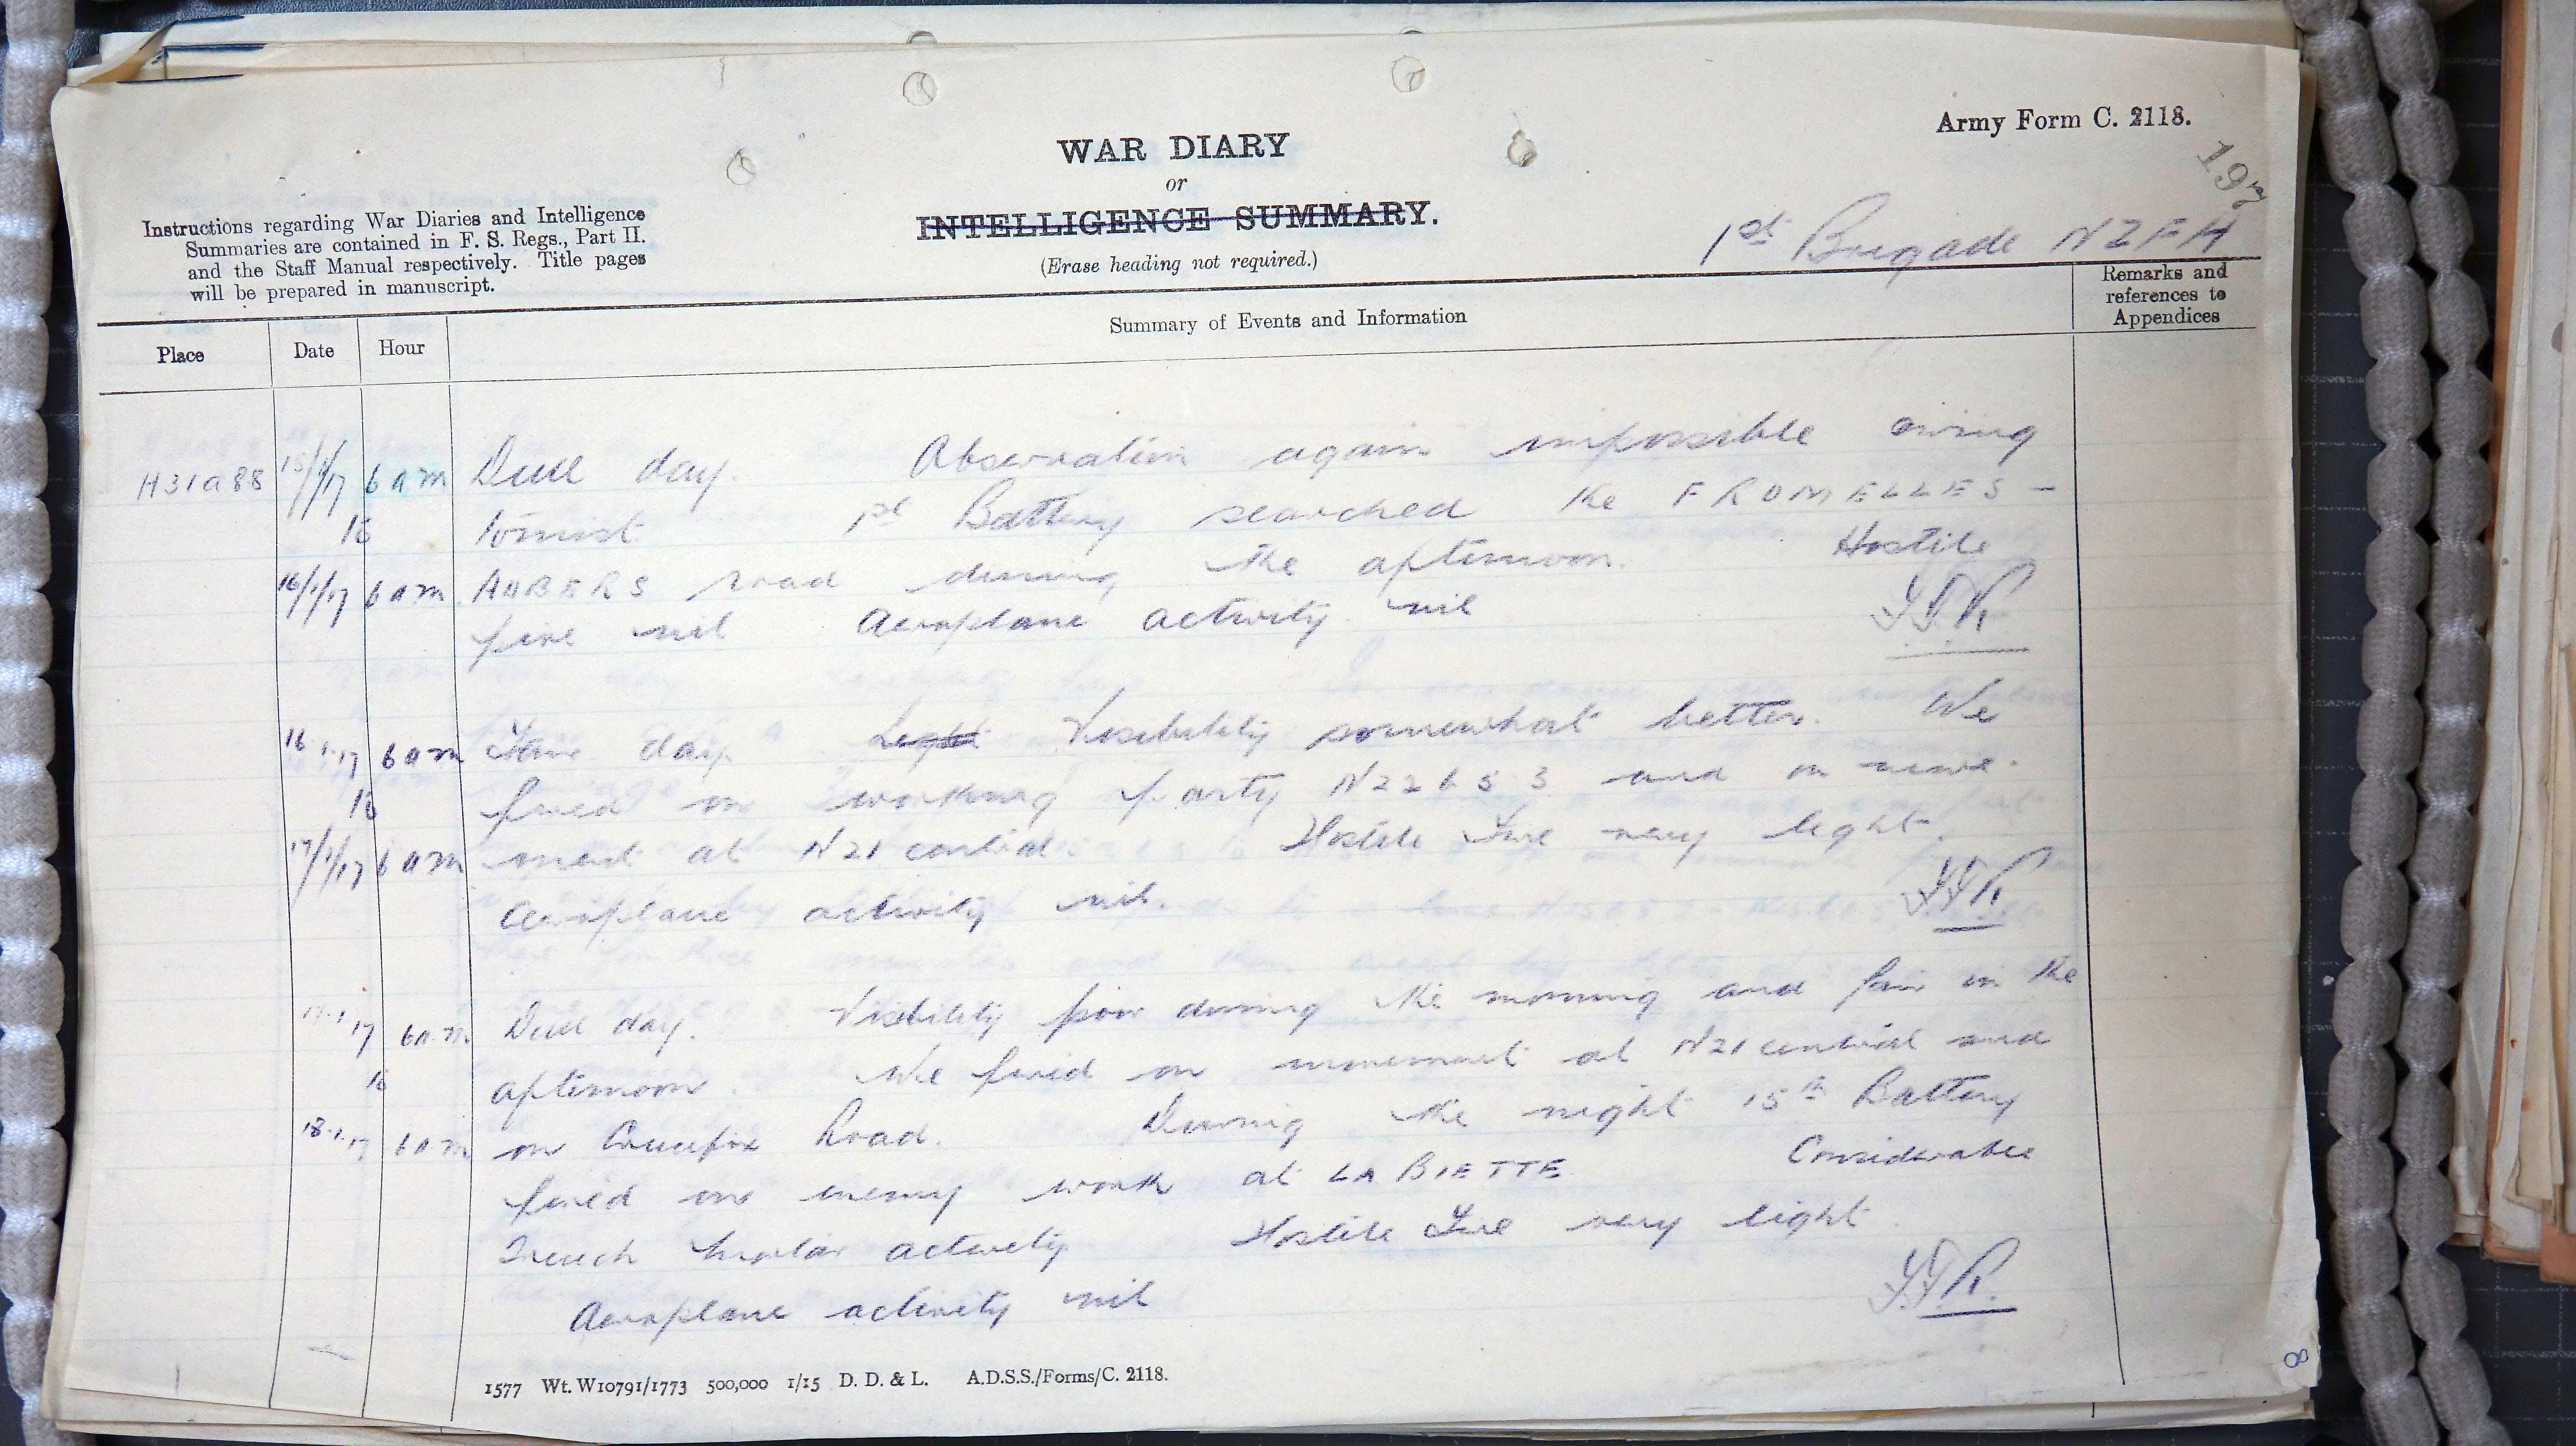 Army Form C. 2118.
WAR DIARY
or
INTELLIGENCE SUMMARY.
(Erase heading not required.)
Instructions regarding War Diaries and Intelligence
Summaries are contained in F. S. Regs., Part II.
and the Staff Manual respectively. Title pages
will be prepared in manuscript.
1st Brigade NZFA
Place
Date
Hour
Summary of Events and Information
Remarks and
references to
Appendices
H31a88 15/1/17 6am Dull day. Observation again impossible owing
to to mist. 1st Battery searched the FROMELLES –
16/1/17 6am AUBERS road during the afternoon. Hostile
fire nil Aeroplane activity nil
16.1.17 6am Fair day. Light Visibility somewhat better. We
to fired on working party N22b53 and on move-
17/1/17 6am ment at N21 central. Hostile Fire very light.
Aeroplane activity nil.
17.1.17 6am Dull day. Visibility poor during the morning and fair in the
to afternoon. We fired on movement at N21 central and
18.1.17 6am on Crucifix Road. During the night 15th Battery
fired on enemy work at LA BIETTE Considerable
Trench Mortar activity Hostile Fire very light
Aeroplane activity nil
8
1577 Wt. W10791/1773 500,000 1/15 D. D. & L. A.D.S.S./Forms/C. 2118.